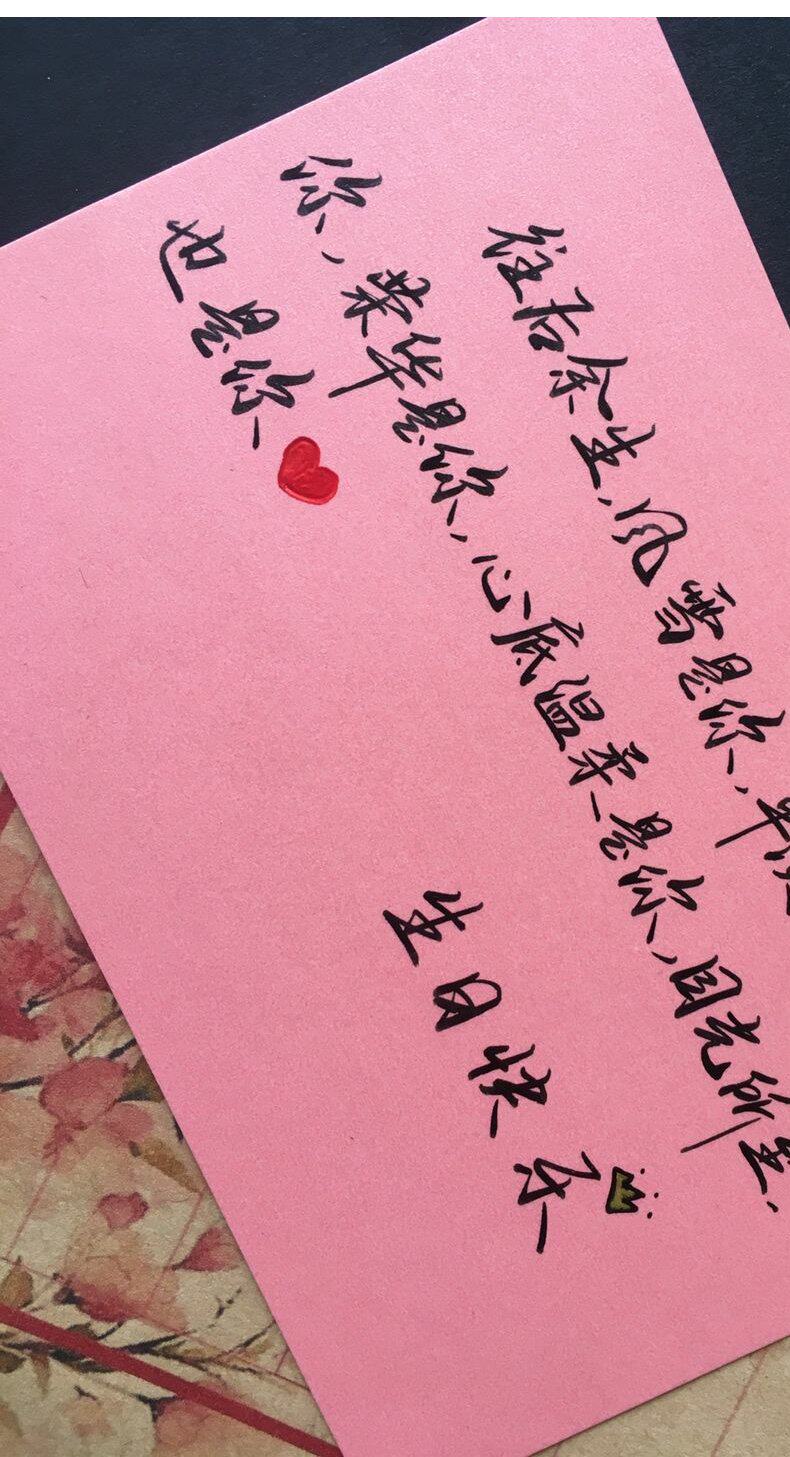 往后余生,风雪是你,平
你,荣华是你,心底温柔是你,目光所至,
也是你
生日快乐